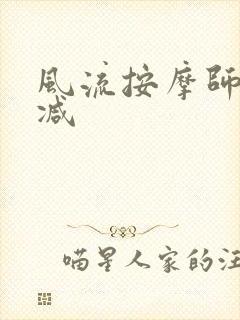 風流按摩師
减
喵星人家的汪